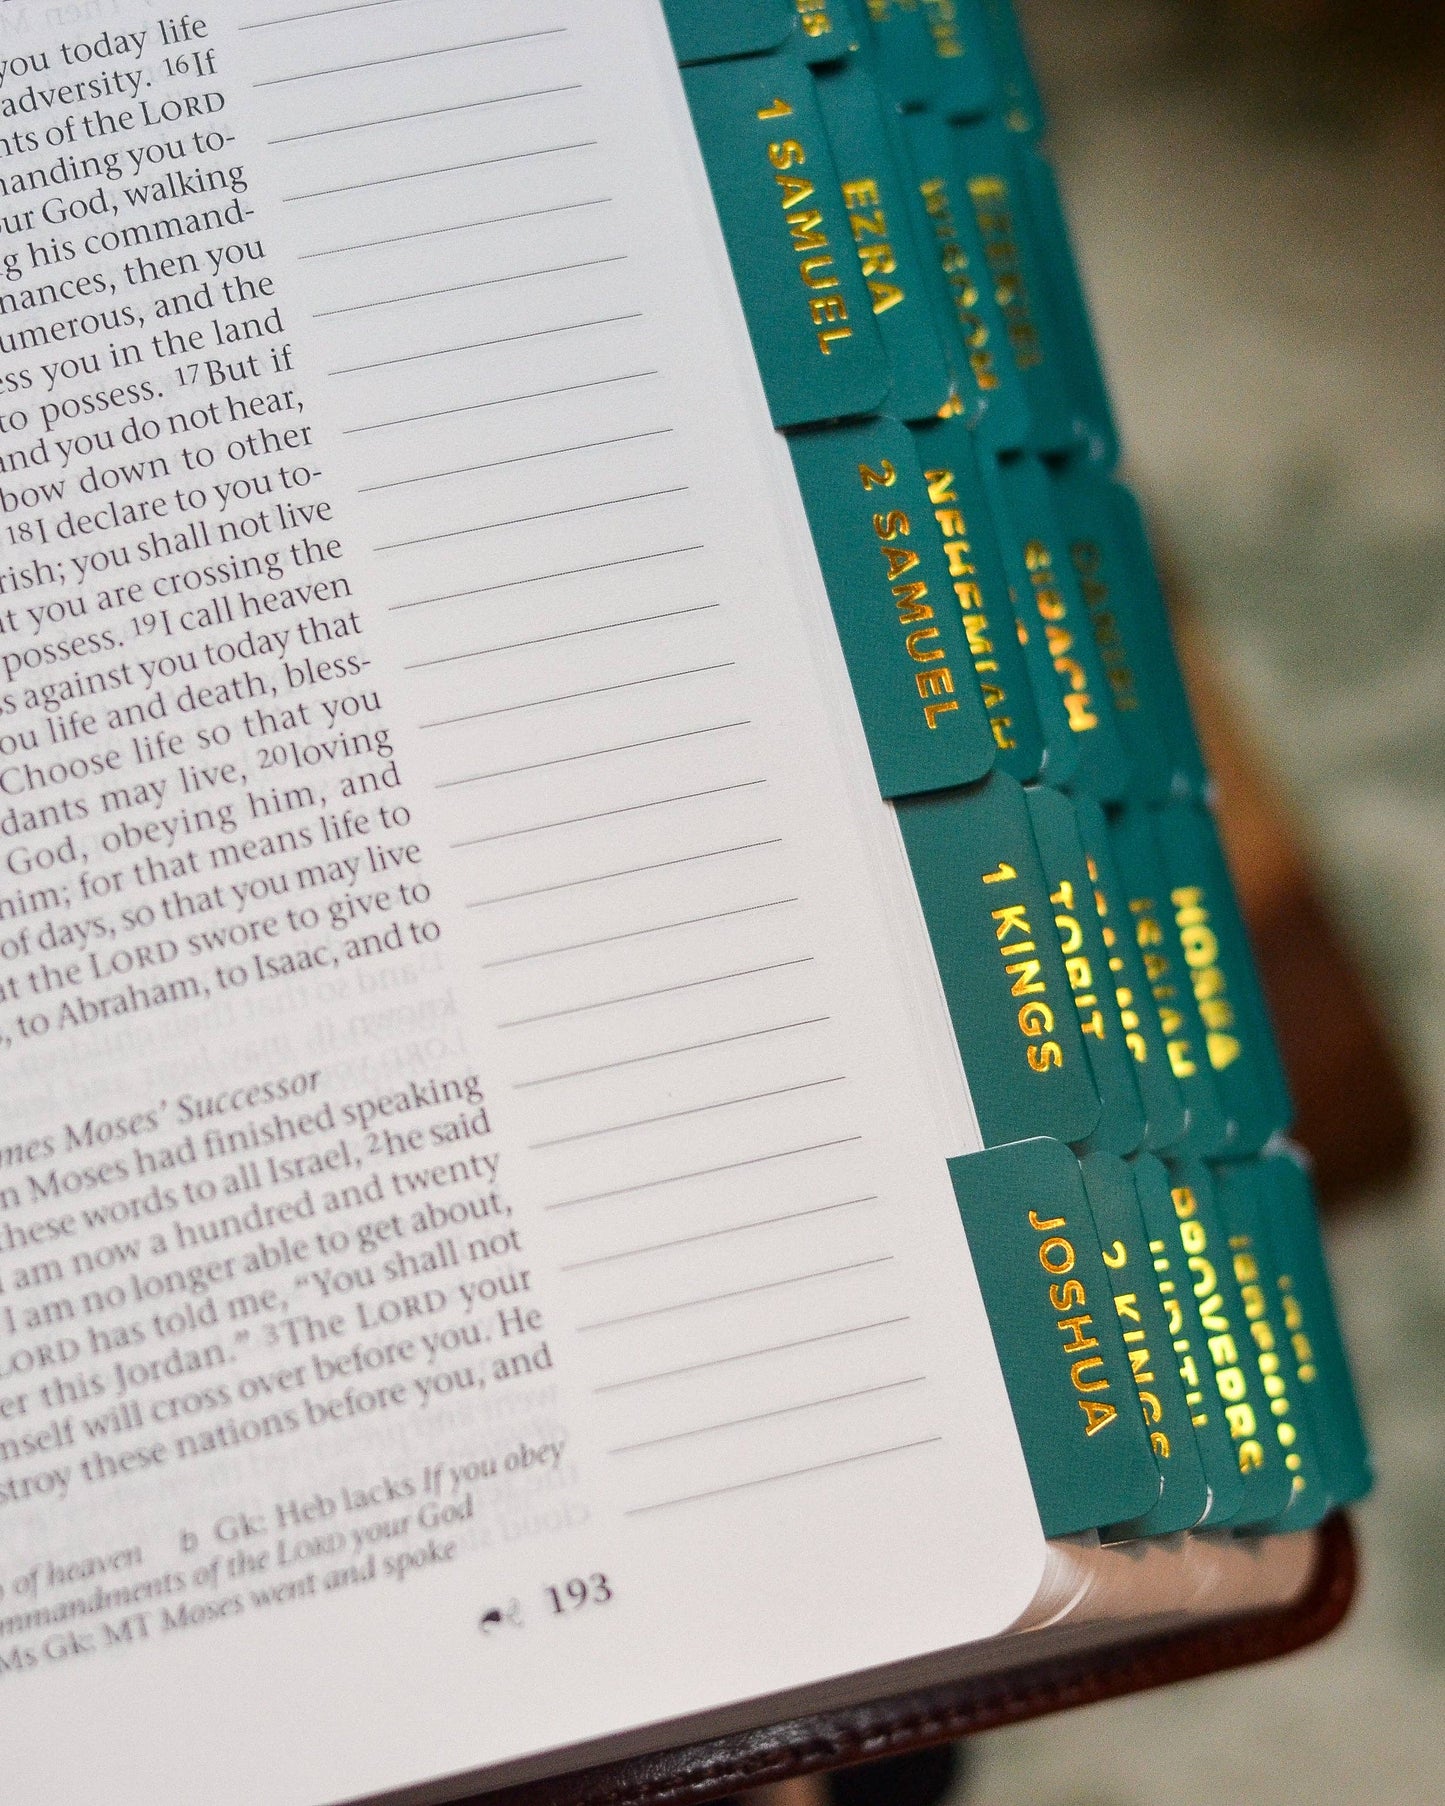 you today life
adversity. 16If
of the LORD
you to-
God, walking
his command-
then you
and the
you in the land
to possess. 17But if
and you do not hear,
bow down to other
18I declare to you to-
you shall not live
you are crossing the
possess. 19I call heaven
against you today that
life and death, bless-
Choose life so that you
may live, 20loving
God, obeying him, and
him; for that means life to
of days, so that you may live
the LORD swore to give to
to Abraham, to Isaac, and to
Moses' Successor
Moses had finished speaking
these words to all Israel, 2he said
am now a hundred and twenty
I am no longer able to get about,
LORD has told me, "You shall not
this Jordan." 3The LORD your
will cross over before you. He
these nations before you, and
of heaven b Gk: Heb lacks If you obey
of the LORD your God
Ms Gk: MT Moses went and spoke
193
1 SAMUEL
EZRA
WISDOM
EZEKIEL
2 SAMUEL
NEHEMIAH
SIRACH
DANIEL
1 KINGS
TOBIT
PSALMS
ISAIAH
HOSEA
JOSHUA
2 KINGS
JUDITH
PROVERBS
JEREMIAH
JOEL